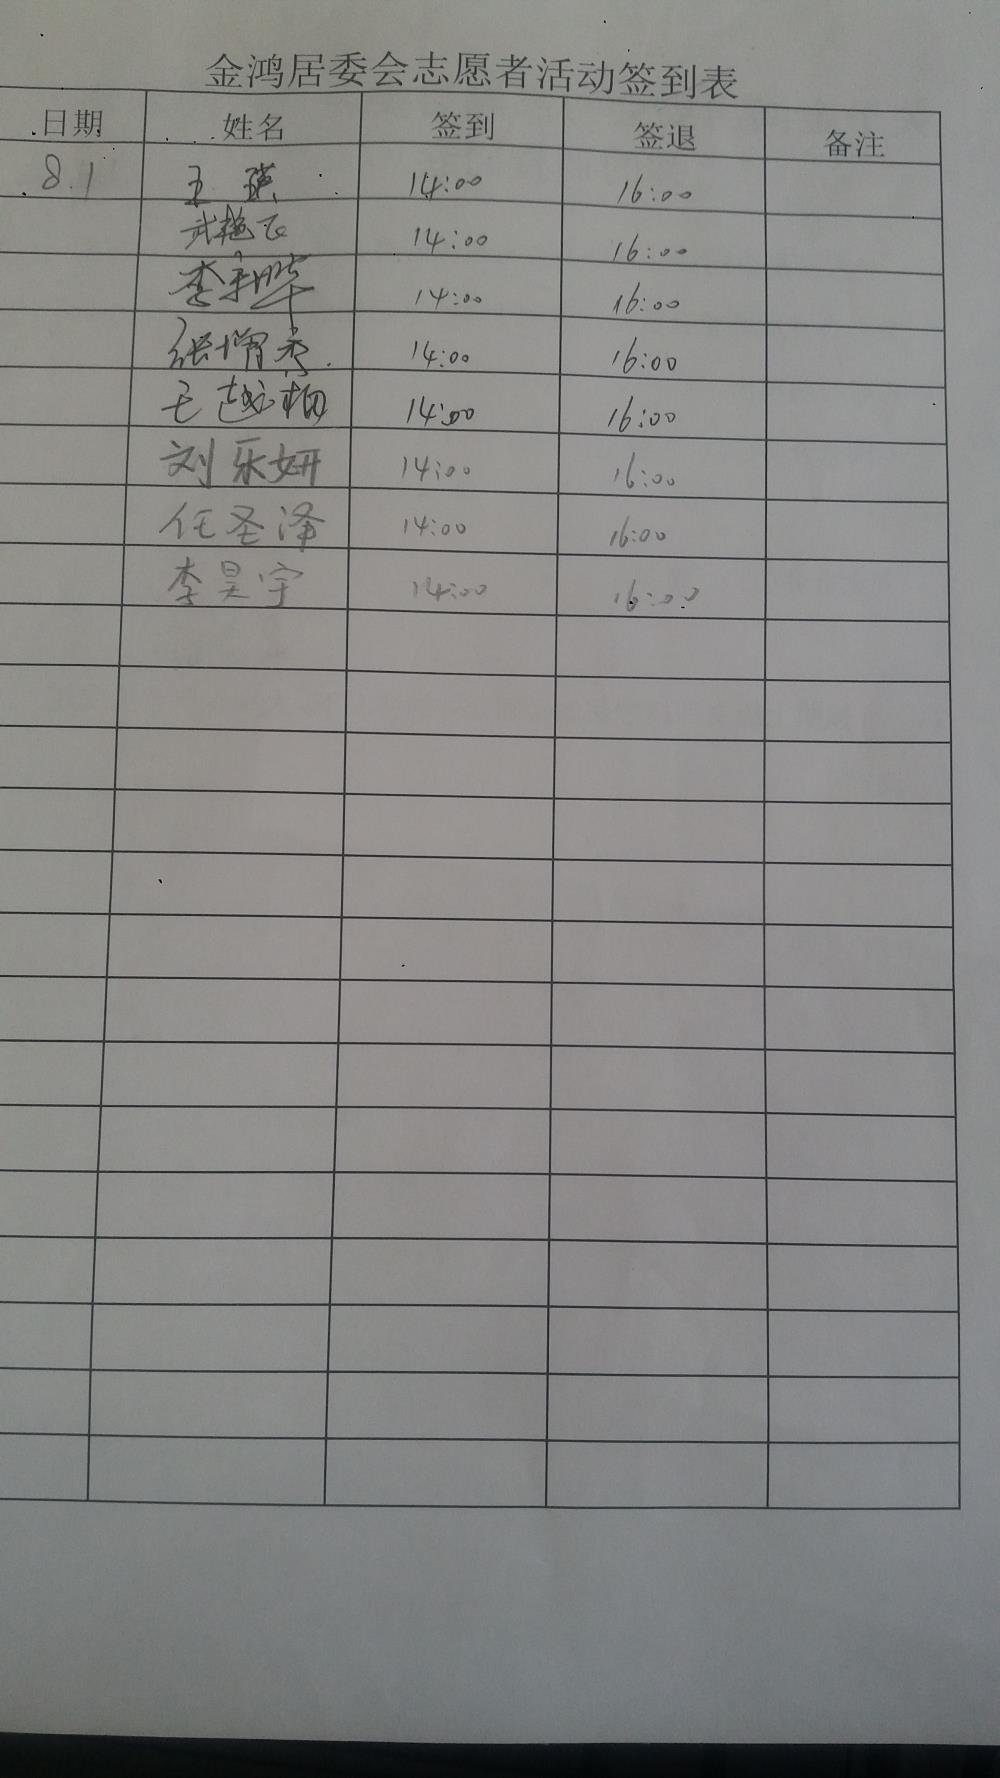 金鸿居委会志愿者活动签到表
日期 姓名 签到 签退 备注
8.1 王瑛 14:00 16:00
武艳飞 14:00 16:00
李 14:00 16:00
张增秀 14:00 16:00
王越相 14:00 16:00
刘乐妍 14:00 16:00
任圣泽 14:00 16:00
李昊宇 14:00 16:00